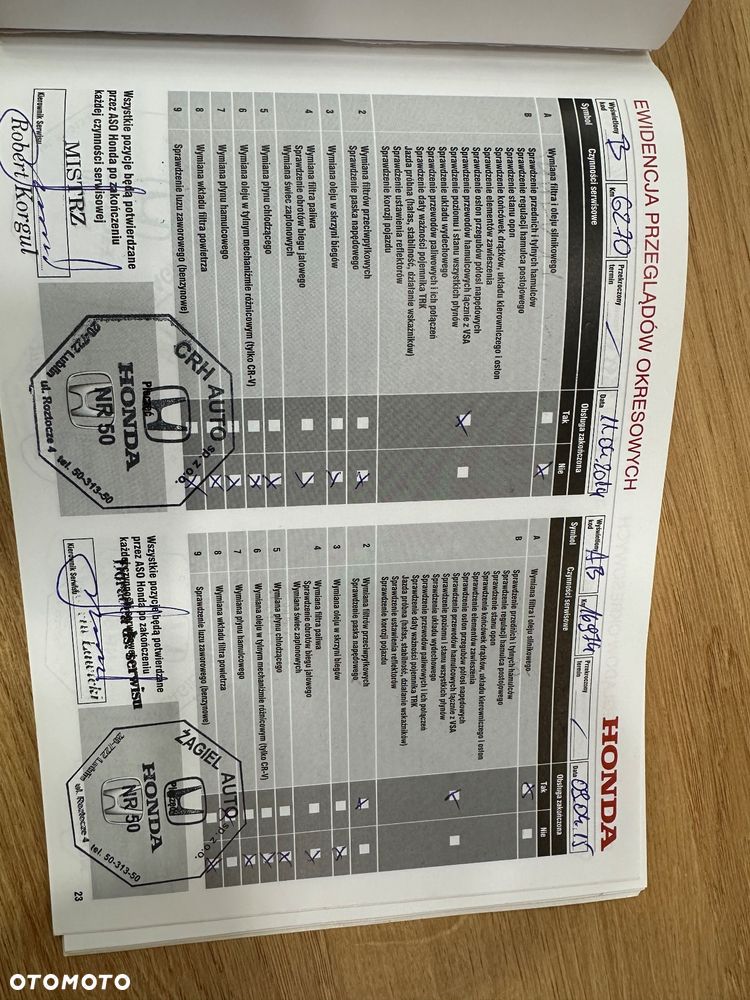 EWIDENCJA PRZEGLĄDÓW OKRESOWYCH
HONDA
Wyświetlony kod B
Km 6270
Przekroczony termin /
Data
Symbol Czynności serwisowe Obsługa zakończona
Tak Nie
A Wymiana filtra i oleju silnikowego
B Sprawdzenie przednich i tylnych hamulców
Sprawdzenie regulacji hamulca postojowego
Sprawdzenie stanu opon
Sprawdzenie końcówek drążków, układu kierowniczego i osłon
Sprawdzenie elementów zawieszenia
Sprawdzenie osłon przegubów półosi napędowych
Sprawdzenie przewodów hamulcowych łącznie z VSA
Sprawdzenie poziomu i stanu wszystkich płynów
Sprawdzenie układu wydechowego
Sprawdzenie przewodów paliwowych i ich połączeń
Sprawdzenie daty ważności pojemnika TRK
Jazda próbna (hałas, stabilność, działanie wskaźników)
Sprawdzenie ustawienia reflektorów
Sprawdzenie korozji pojazdu
2 Wymiana filtrów przeciwpyłkowych
Sprawdzenie paska napędowego
3 Wymiana oleju w skrzyni biegów
4 Wymiana filtra paliwa
Sprawdzenie obrotów biegu jałowego
Wymiana świec zapłonowych
5 Wymiana płynu chłodzącego
6 Wymiana oleju w tylnym mechanizmie różnicowym (tylko CR-V)
7 Wymiana płynu hamulcowego
8 Wymiana wkładu filtra powietrza
9 Sprawdzenie luzu zaworowego (benzynowe)
Wszystkie pozycje będą potwierdzane
przez ASO Honda po zakończeniu
każdej czynności serwisowej
Kierownik Serwisu
MISTRZ
Robert Korgul
CRH AUTO
sp. z o.o.
Pieczęć
HONDA
NR 50
20-722 Lublin
ul. Roztocze 4
tel. 50-313-50
Wyświetlony kod AB
Km 16974
Przekroczony termin /
Data 09.04.15
Symbol Czynności serwisowe Obsługa zakończona
Tak Nie
A Wymiana filtra i oleju silnikowego
B Sprawdzenie przednich i tylnych hamulców
Sprawdzenie regulacji hamulca postojowego
Sprawdzenie stanu opon
Sprawdzenie końcówek drążków, układu kierowniczego i osłon
Sprawdzenie elementów zawieszenia
Sprawdzenie osłon przegubów półosi napędowych
Sprawdzenie przewodów hamulcowych łącznie z VSA
Sprawdzenie poziomu i stanu wszystkich płynów
Sprawdzenie układu wydechowego
Sprawdzenie przewodów paliwowych i ich połączeń
Sprawdzenie daty ważności pojemnika TRK
Jazda próbna (hałas, stabilność, działanie wskaźników)
Sprawdzenie ustawienia reflektorów
Sprawdzenie korozji pojazdu
2 Wymiana filtrów przeciwpyłkowych
Sprawdzenie paska napędowego
3 Wymiana oleju w skrzyni biegów
4 Wymiana filtra paliwa
Sprawdzenie obrotów biegu jałowego
Wymiana świec zapłonowych
5 Wymiana płynu chłodzącego
6 Wymiana oleju w tylnym mechanizmie różnicowym (tylko CR-V)
7 Wymiana płynu hamulcowego
8 Wymiana wkładu filtra powietrza
9 Sprawdzenie luzu zaworowego (benzynowe)
Wszystkie pozycje będą potwierdzane
przez ASO Honda po zakończeniu
każdej czynności serwisowej
Doradca ds. serwisu
Kierownik Serwisu
ŻAGIEL AUTO
sp. z o.o.
Pieczęć
HONDA
NR 50
20-722 Lublin
ul. Roztocze 4
tel. 50-313-50
23
OTOMOTO